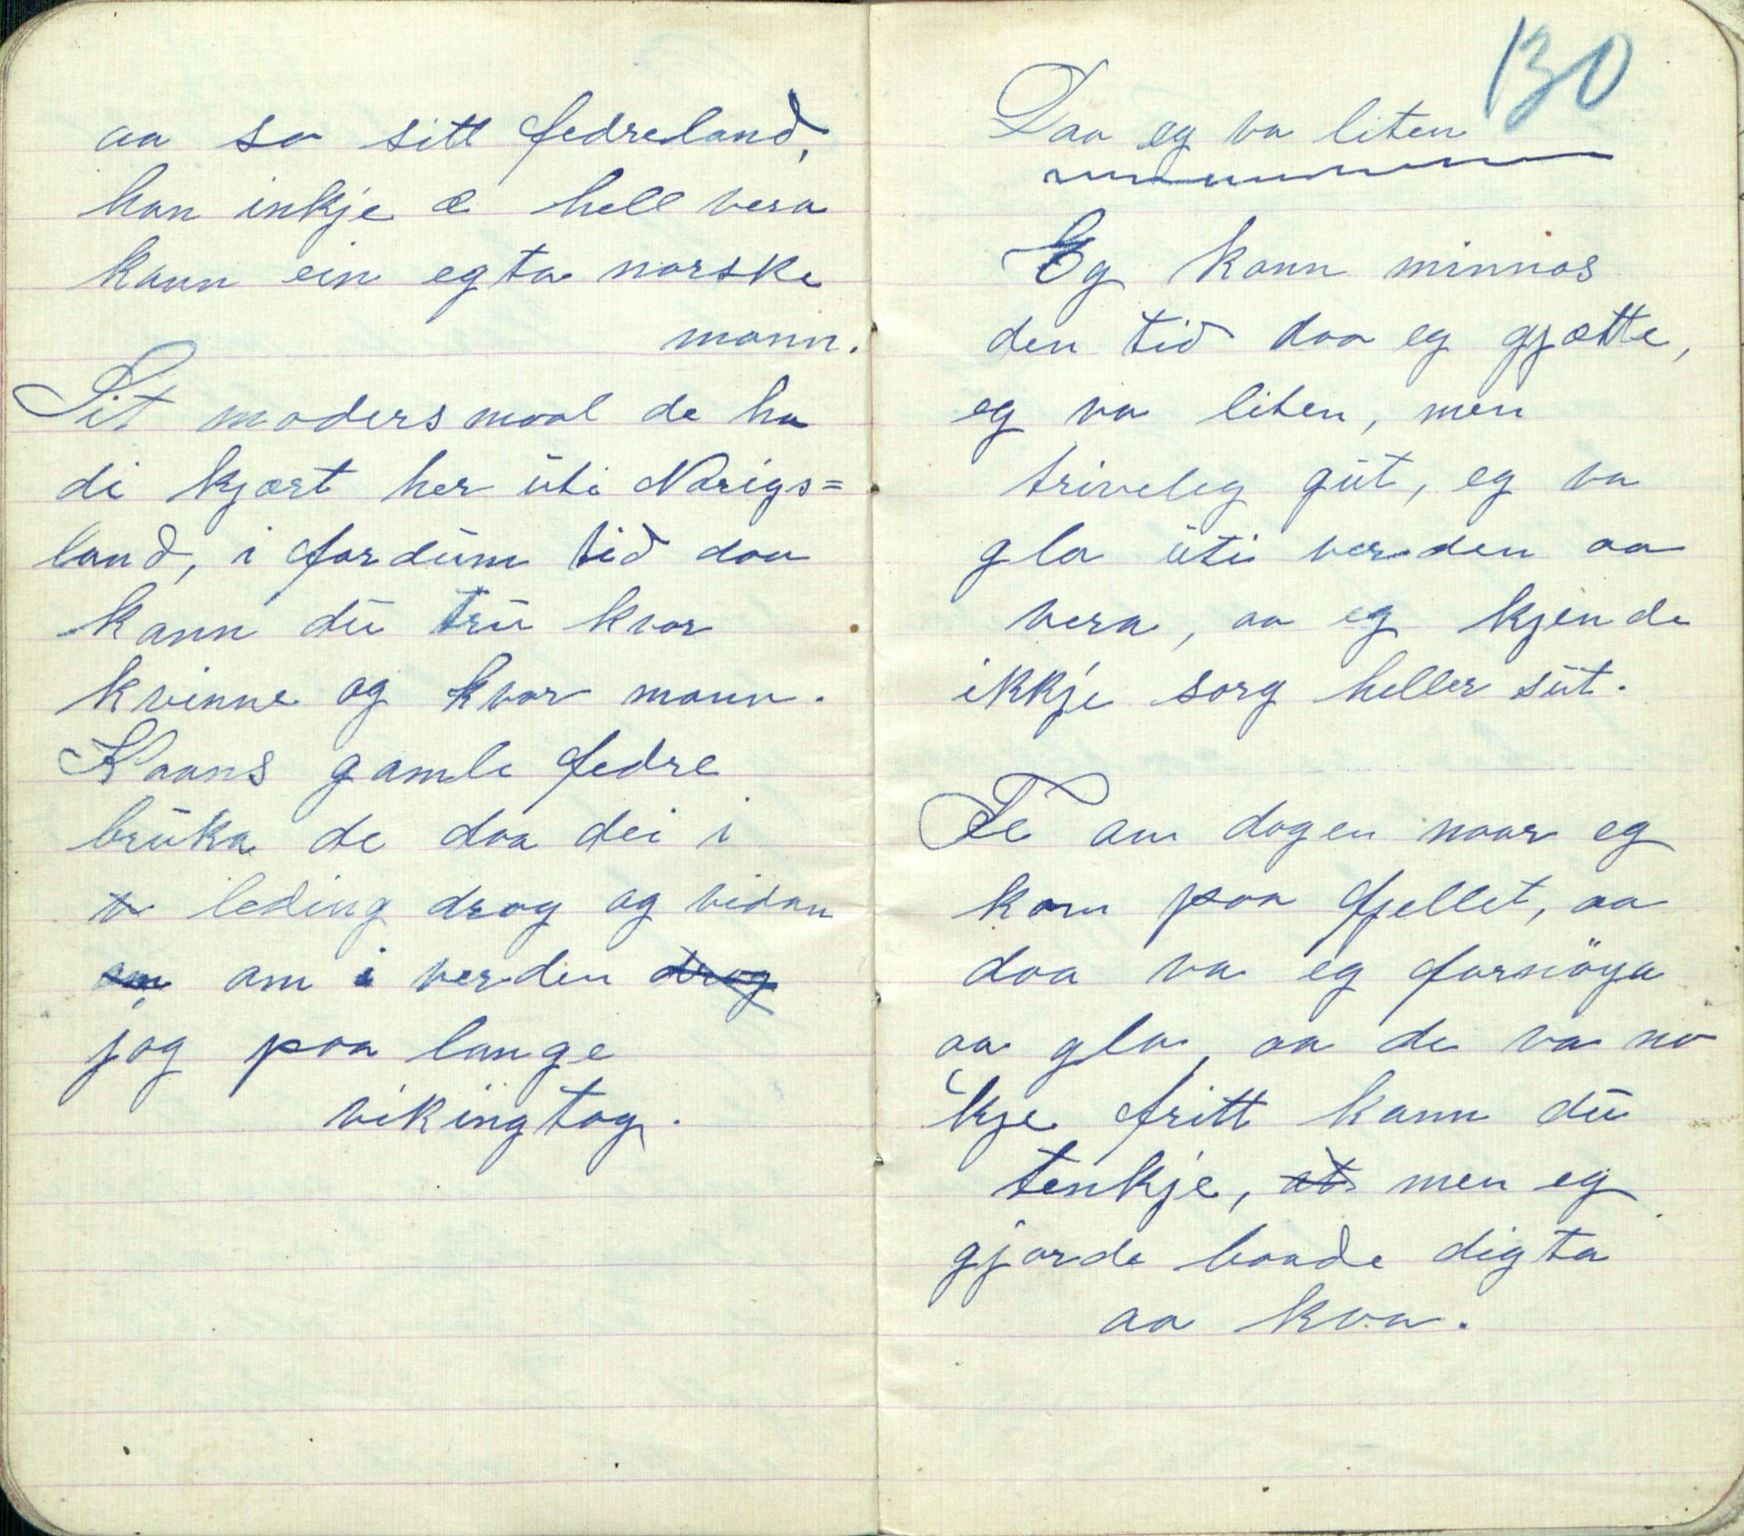 aa so sitt fedreland,
han inkje æ hell vera
kann ein egta norske
mann.
Sit modersmaal de ha
di kjært her uti Norigs=
land, i fordum tid daa
kann du tru kvar
kvinne og kvar mann.
Kaans gamle fedre
bruka de daa dei i
leding drog og vidan
om om i verden drog
jog paa lange
vikingtog.
130
Daa eg va liten
Eg kann minnas
den tid daa eg gjætte,
eg va liten, men
triveleg gut, eg va
gla uti verden aa
vera, aa eg kjende
ikkje sorg heller sut.
Te om dagen naar eg
kom paa fjellet, aa
daa va eg fornöya
aa gla, aa de va no
kje fritt kann du
tenkje, at men eg
gjorde baade digta
aa kva.